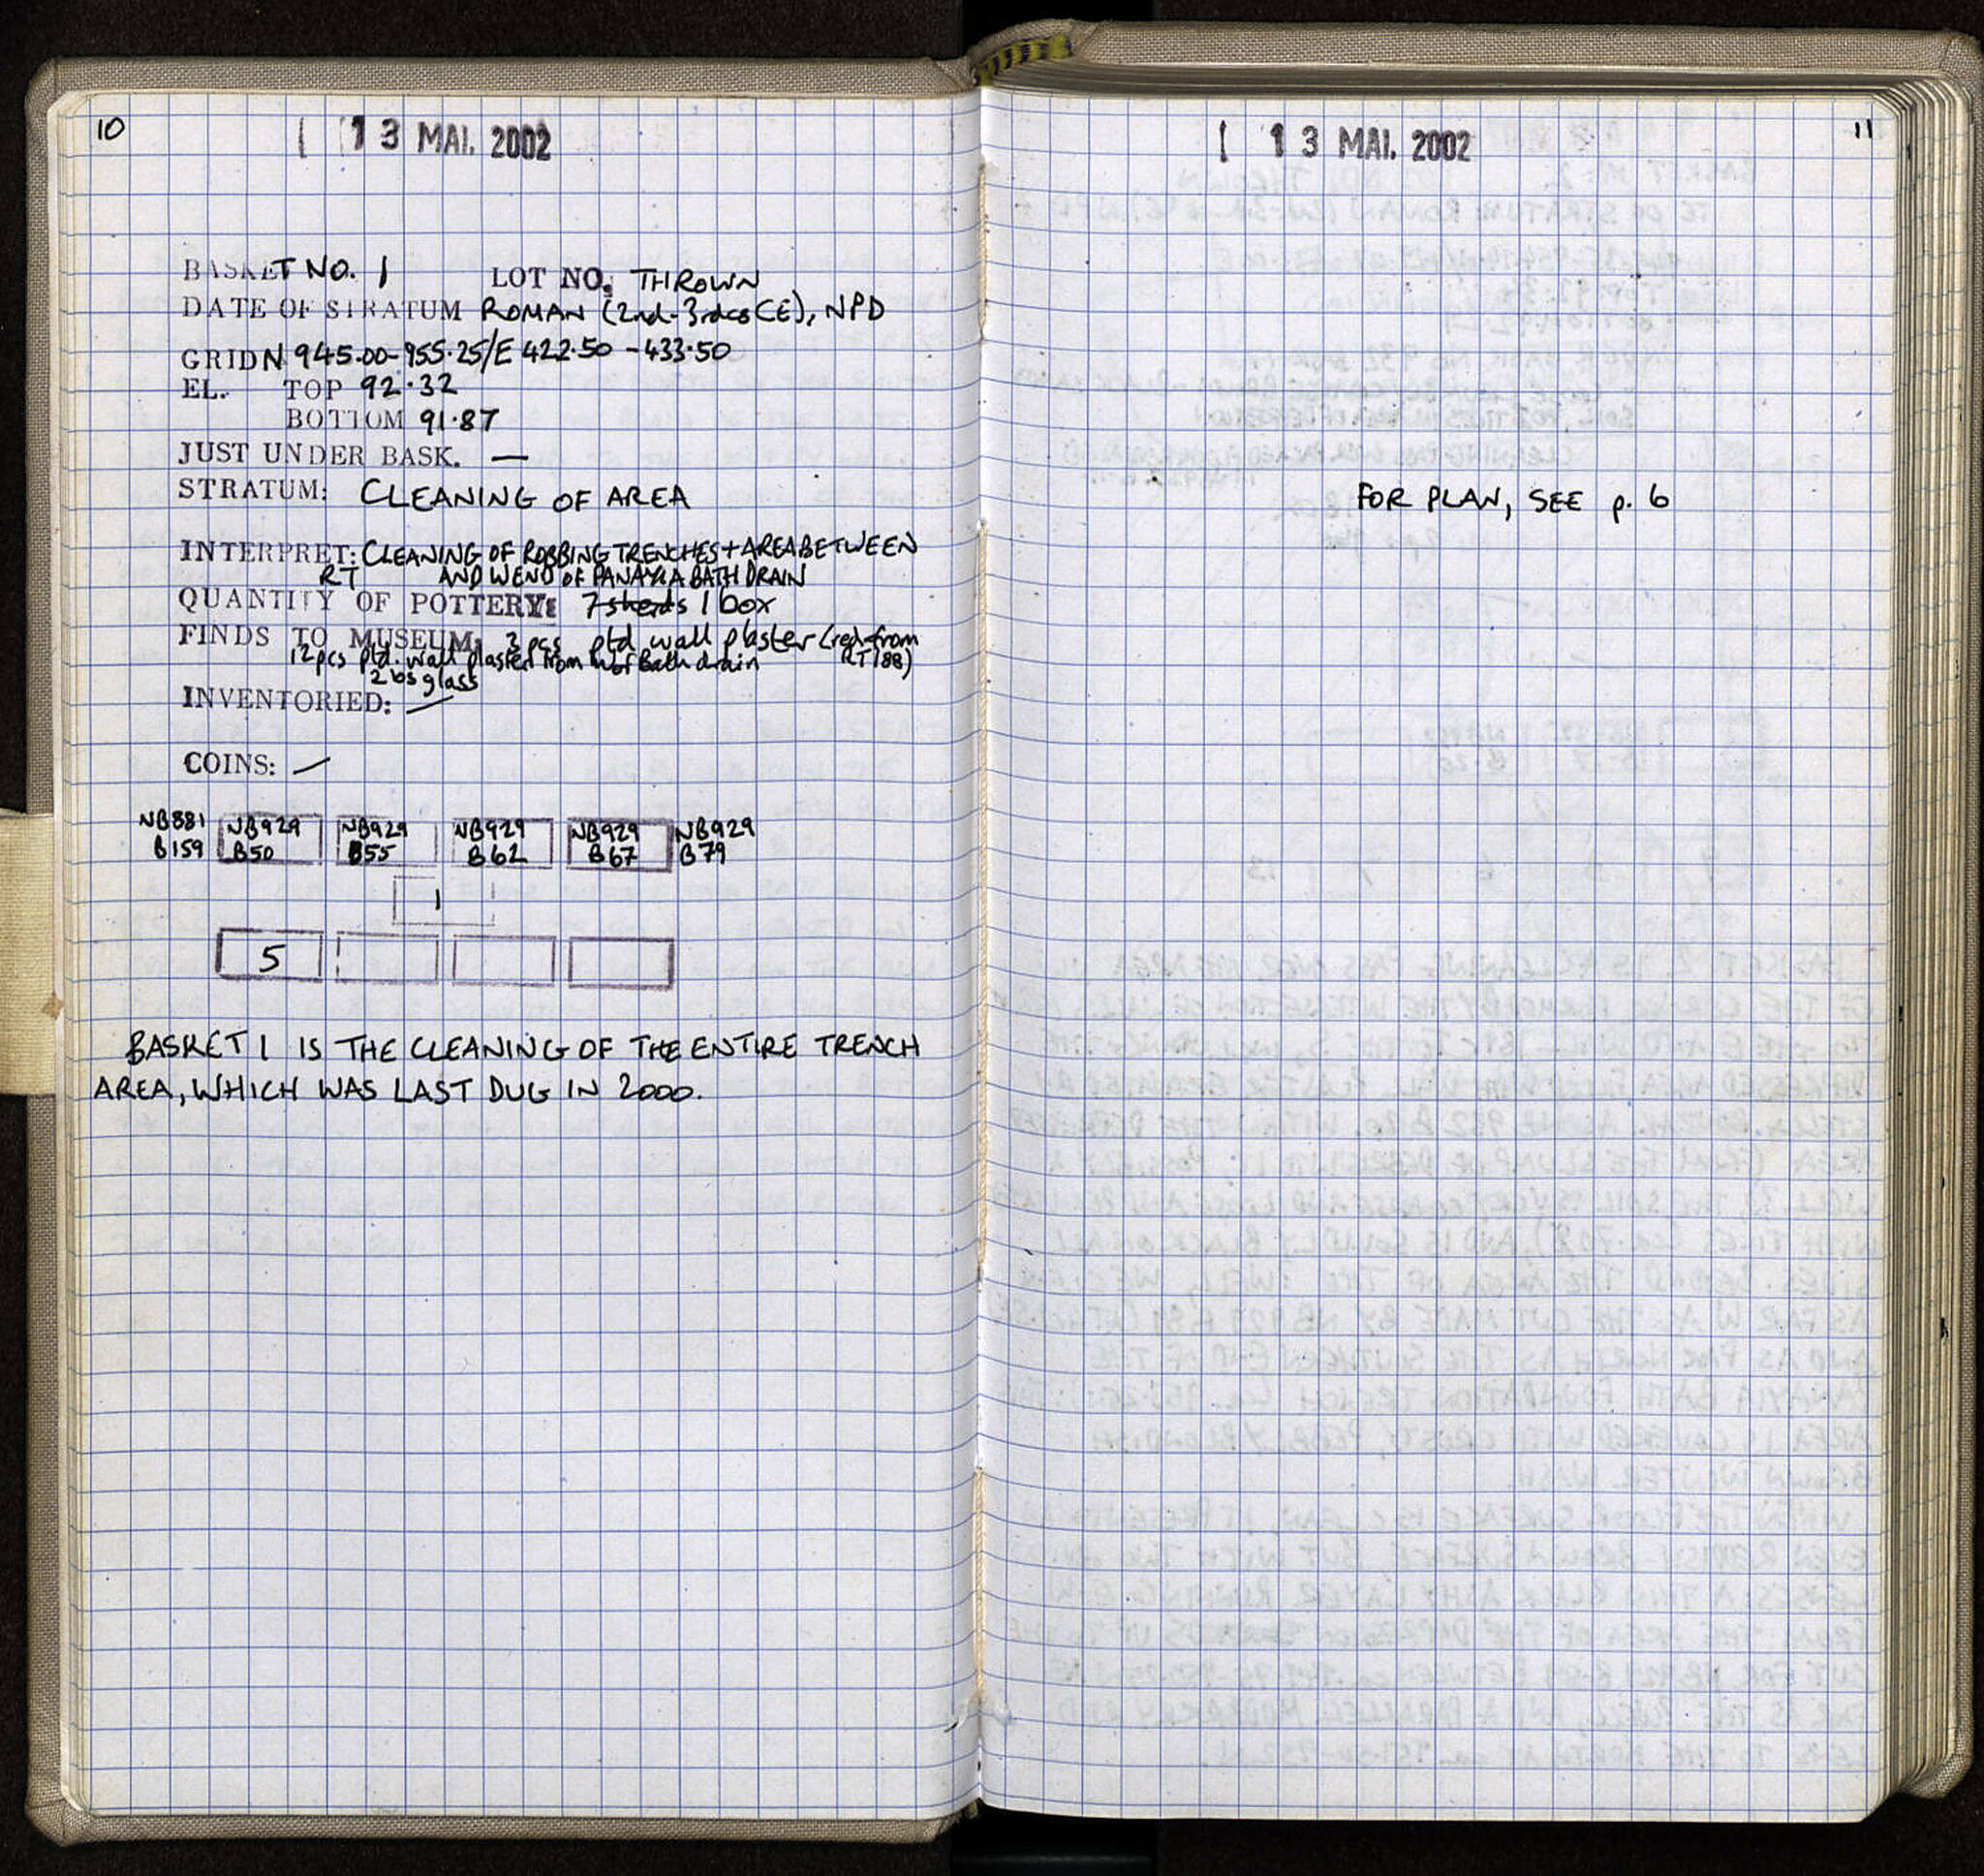 10
13 MAI. 2002
BASKET NO. 1 LOT NO. THROWN
DATE OF STRATUM ROMAN (2nd-3rdcs CE), NPD
GRID N 945.00-955.25/E 422.50-433.50
EL. TOP 92.32
BOTTOM 91.87
JUST UNDER BASK. —
STRATUM: CLEANING OF AREA
INTERPRET: CLEANING OF ROBBING TRENCHES + AREA BETWEEN
RT AND W END OF PANAYIA BATH DRAIN
QUANTITY OF POTTERY: 7 sherds 1 box
FINDS TO MUSEUM: 3 pcs ptd wall plaster (red-from
12 pcs ptd. wall plaster from W of Bath drain RT188)
2 bs glass
INVENTORIED: —
COINS: —
NB881 NB929 NB929 NB929 NB929 NB929
B159 B50 B55 B62 B67 B79
1
5
BASKET 1 IS THE CLEANING OF THE ENTIRE TRENCH
AREA, WHICH WAS LAST DUG IN 2000.
13 MAI. 2002
11
FOR PLAN, SEE p. 6